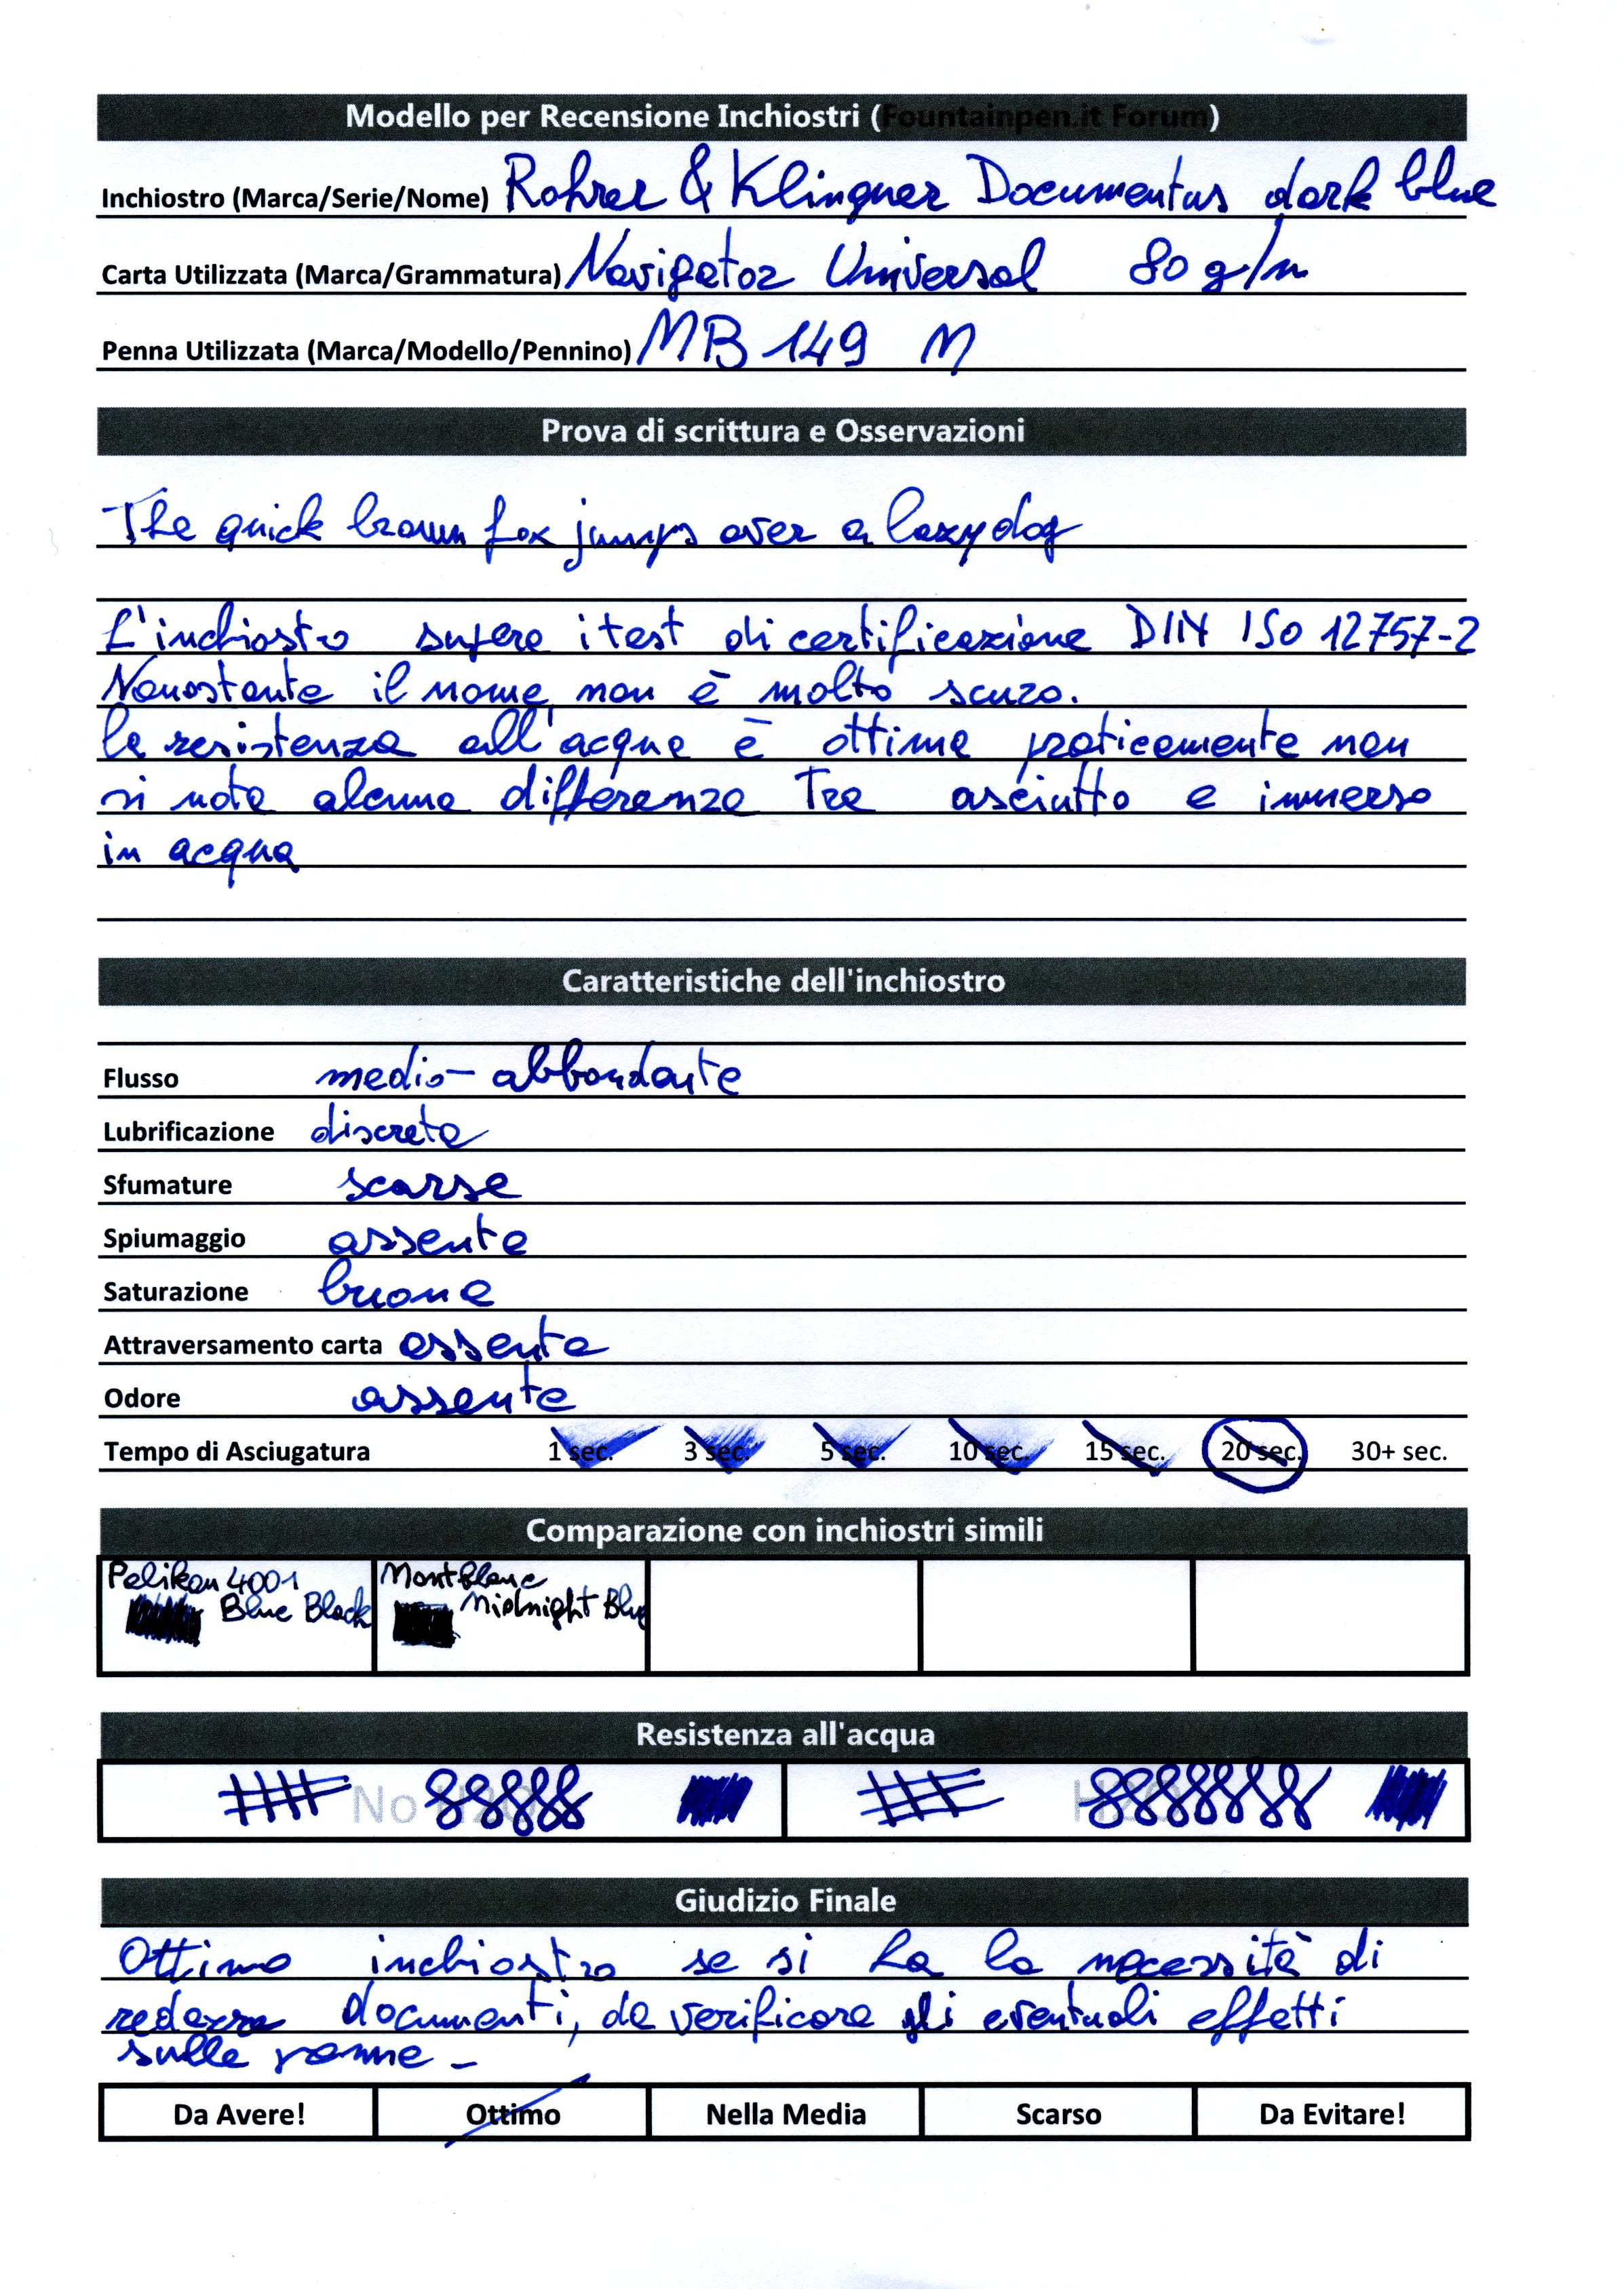 Modello per Recensione Inchiostri (Fountainpen.it Forum)
Inchiostro (Marca/Serie/Nome) Rohrer & Klingner Documentus dark blue
Carta Utilizzata (Marca/Grammatura) Navigator Universal 80 g/m
Penna Utilizzata (Marca/Modello/Pennino) MB 149 M
Prova di scrittura e Osservazioni
The quick brown fox jumps over a lazy dog
L'inchiosto supera i test di certificazione DIN ISO 12757-2
Nonostante il nome non è molto scuro.
la resistenza all'acqua è ottima praticamente non
si nota alcuna differenza Tra asciutto e immerso
in acqua
Caratteristiche dell'inchiostro
Flusso medio-abbondante
Lubrificazione discreta
Sfumature scarse
Spiumaggio assente
Saturazione buona
Attraversamento carta assente
Odore assente
Tempo di Asciugatura 1 sec. 3 sec. 5 sec. 10 sec. 15 sec. 20 sec. 30+ sec.
Comparazione con inchiostri simili
Pelikan 4001 Blue Black
Montblanc Midnight Blue
Resistenza all'acqua
No H2O H2O
Giudizio Finale
Ottimo inchiostro se si ha la necessità di
documenti, da verificare gli eventuali effetti
sulle penne -
Da Avere! Ottimo Nella Media Scarso Da Evitare!